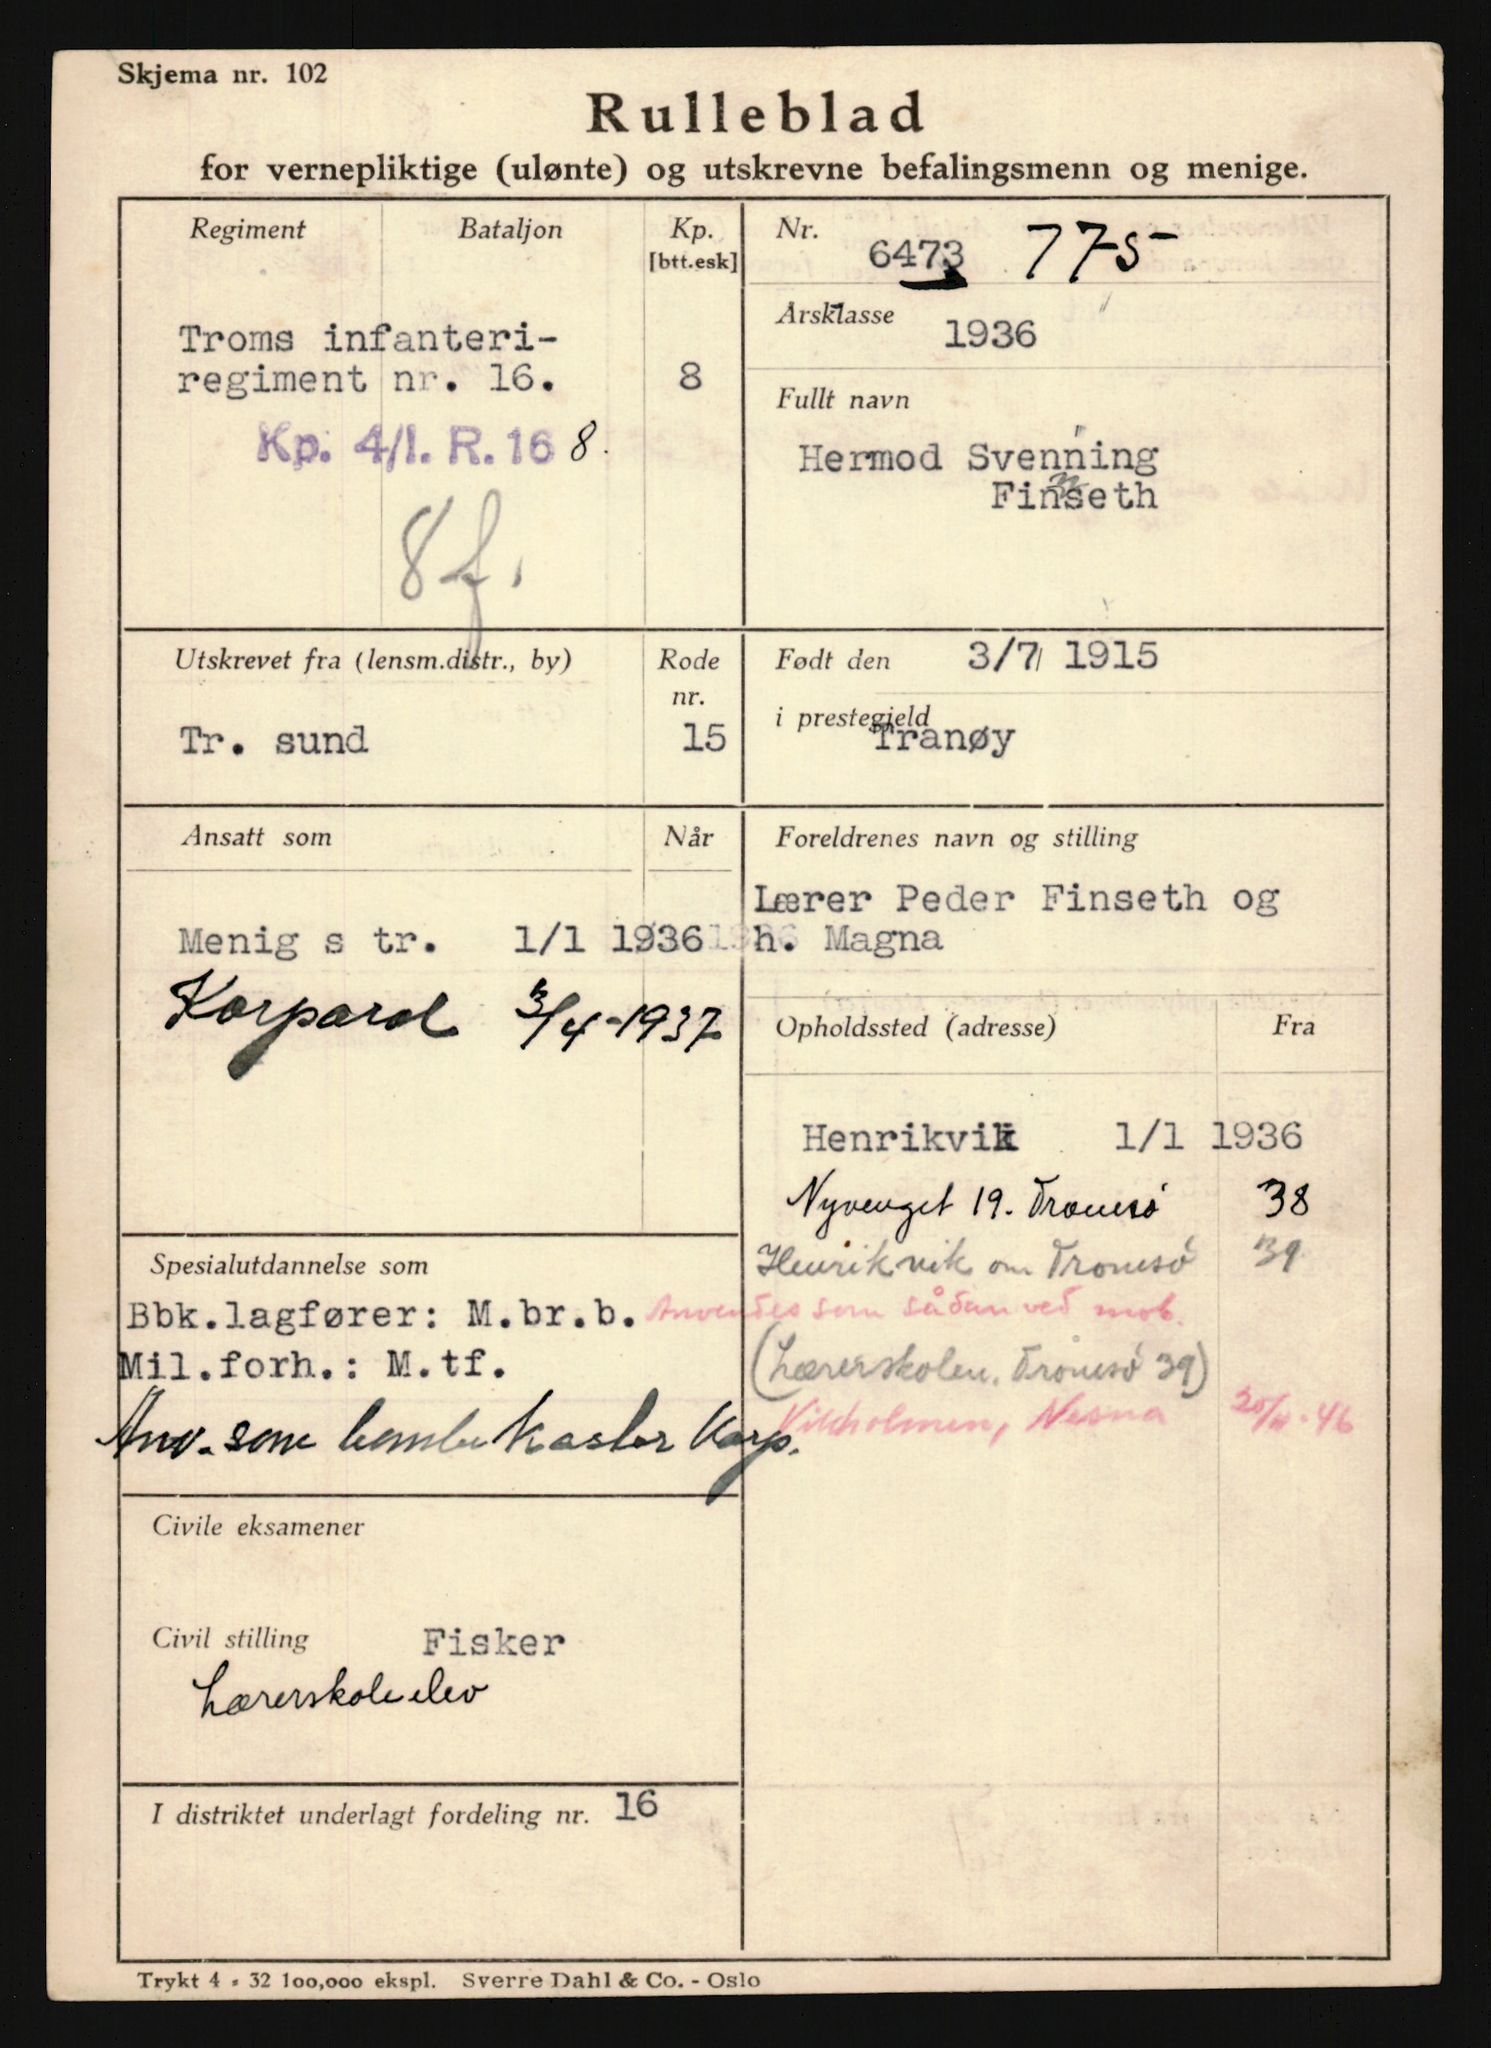 Skjema nr. 102
Rulleblad
for vernepliktige (ulønte) og utskrevne befalingsmenn og menige.
Regiment Bataljon Kp. [btt.esk]
Troms infanteri-
regiment nr. 16. 8
Kp. 4/I. R. 16 8.
8f.
Nr. 6473 775
Årsklasse 1936
Fullt navn
Hermod Svenning
Finseth
Utskrevet fra (lensm.distr., by) Rode nr.
Tr. sund 15
Født den 3/7 1915
i prestegjeld Tranøy
Ansatt som Når
Menig s tr. 1/1 1936
Korporal 3/4-1937
Foreldrenes navn og stilling
Lærer Peder Finseth og
h. Magna
Opholdssted (adresse) Fra
Henrikvik 1/1 1936
Nyvenget 19. Tromsö 38
Henrikvik om Tromsö 39
(Lærerskolen. Tromsö 39)
Vikholmen, Nesna 20/11-46
Spesialutdannelse som
Bbk.lagfører: M.br.b. Anvendes som sådan ved mob.
Mil.forh.: M.tf.
Anv. som bombekaster Korp.
Civile eksamener
Civil stilling Fisker
Lærerskoleelev
I distriktet underlagt fordeling nr. 16
Trykt 4 - 32 100,000 ekspl. Sverre Dahl & Co. - Oslo